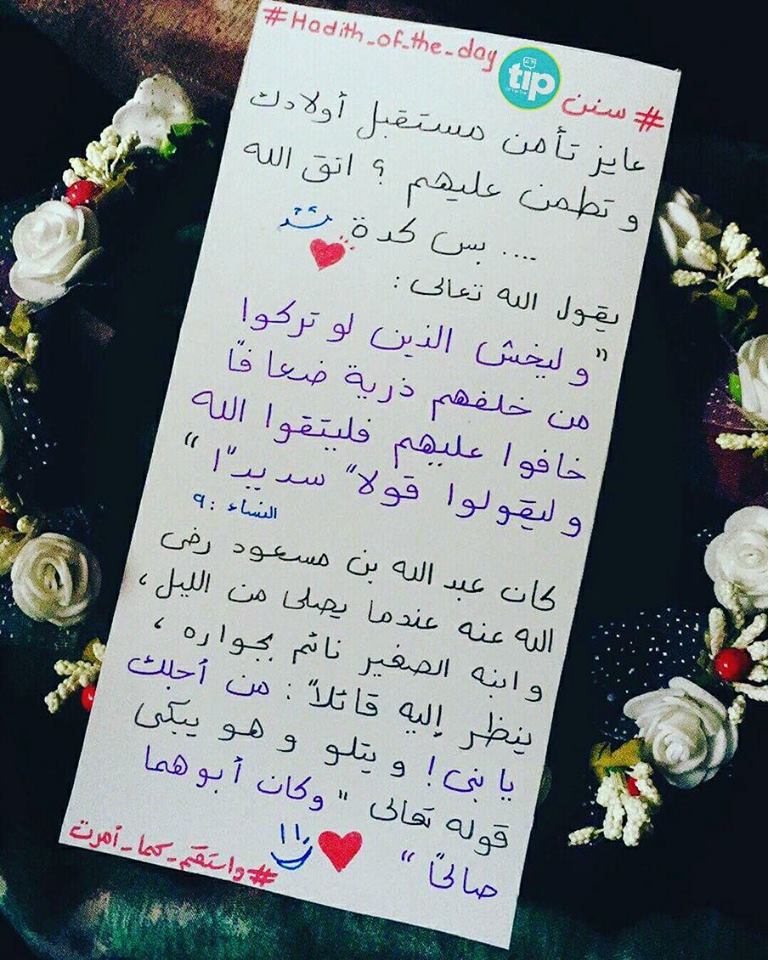 #Hadith_of_the_day
tip
#سنن
عايز تأمن مستقبل أولادك
و تطمن عليهم ؟ اتق الله
.... بس كدة
يقول الله تعالى :
" و ليخش الذين لو تركوا
من خلفهم ذرية ضعافًا
خافوا عليهم فليتقوا الله
و ليقولوا قولاً سديدًا "
النساء : ٩
كان عبد الله بن مسعود رضى
الله عنه عندما يصلى من الليل ،
و ابنه الصغير نائم بجواره ،
ينظر إليه قائلاً : من أجلك
يا بنى ! و يتلو و هو يبكى
قوله تعالى " وكان أبوهما
صالحًا "
#واستقم_كما_أمرت